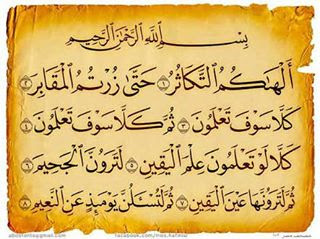 بِسْمِ اللَّهِ الرَّحْمَٰنِ الرَّحِيمِ
أَلْهَاكُمُ التَّكَاثُرُ ١ حَتَّىٰ زُرْتُمُ الْمَقَابِرَ ٢
كَلَّا سَوْفَ تَعْلَمُونَ ٣ ثُمَّ كَلَّا سَوْفَ تَعْلَمُونَ ٤
كَلَّا لَوْ تَعْلَمُونَ عِلْمَ الْيَقِينِ ٥ لَتَرَوُنَّ الْجَحِيمَ ٦
ثُمَّ لَتَرَوُنَّهَا عَيْنَ الْيَقِينِ ٧ ثُمَّ لَتُسْأَلُنَّ يَوْمَئِذٍ عَنِ النَّعِيمِ ٨